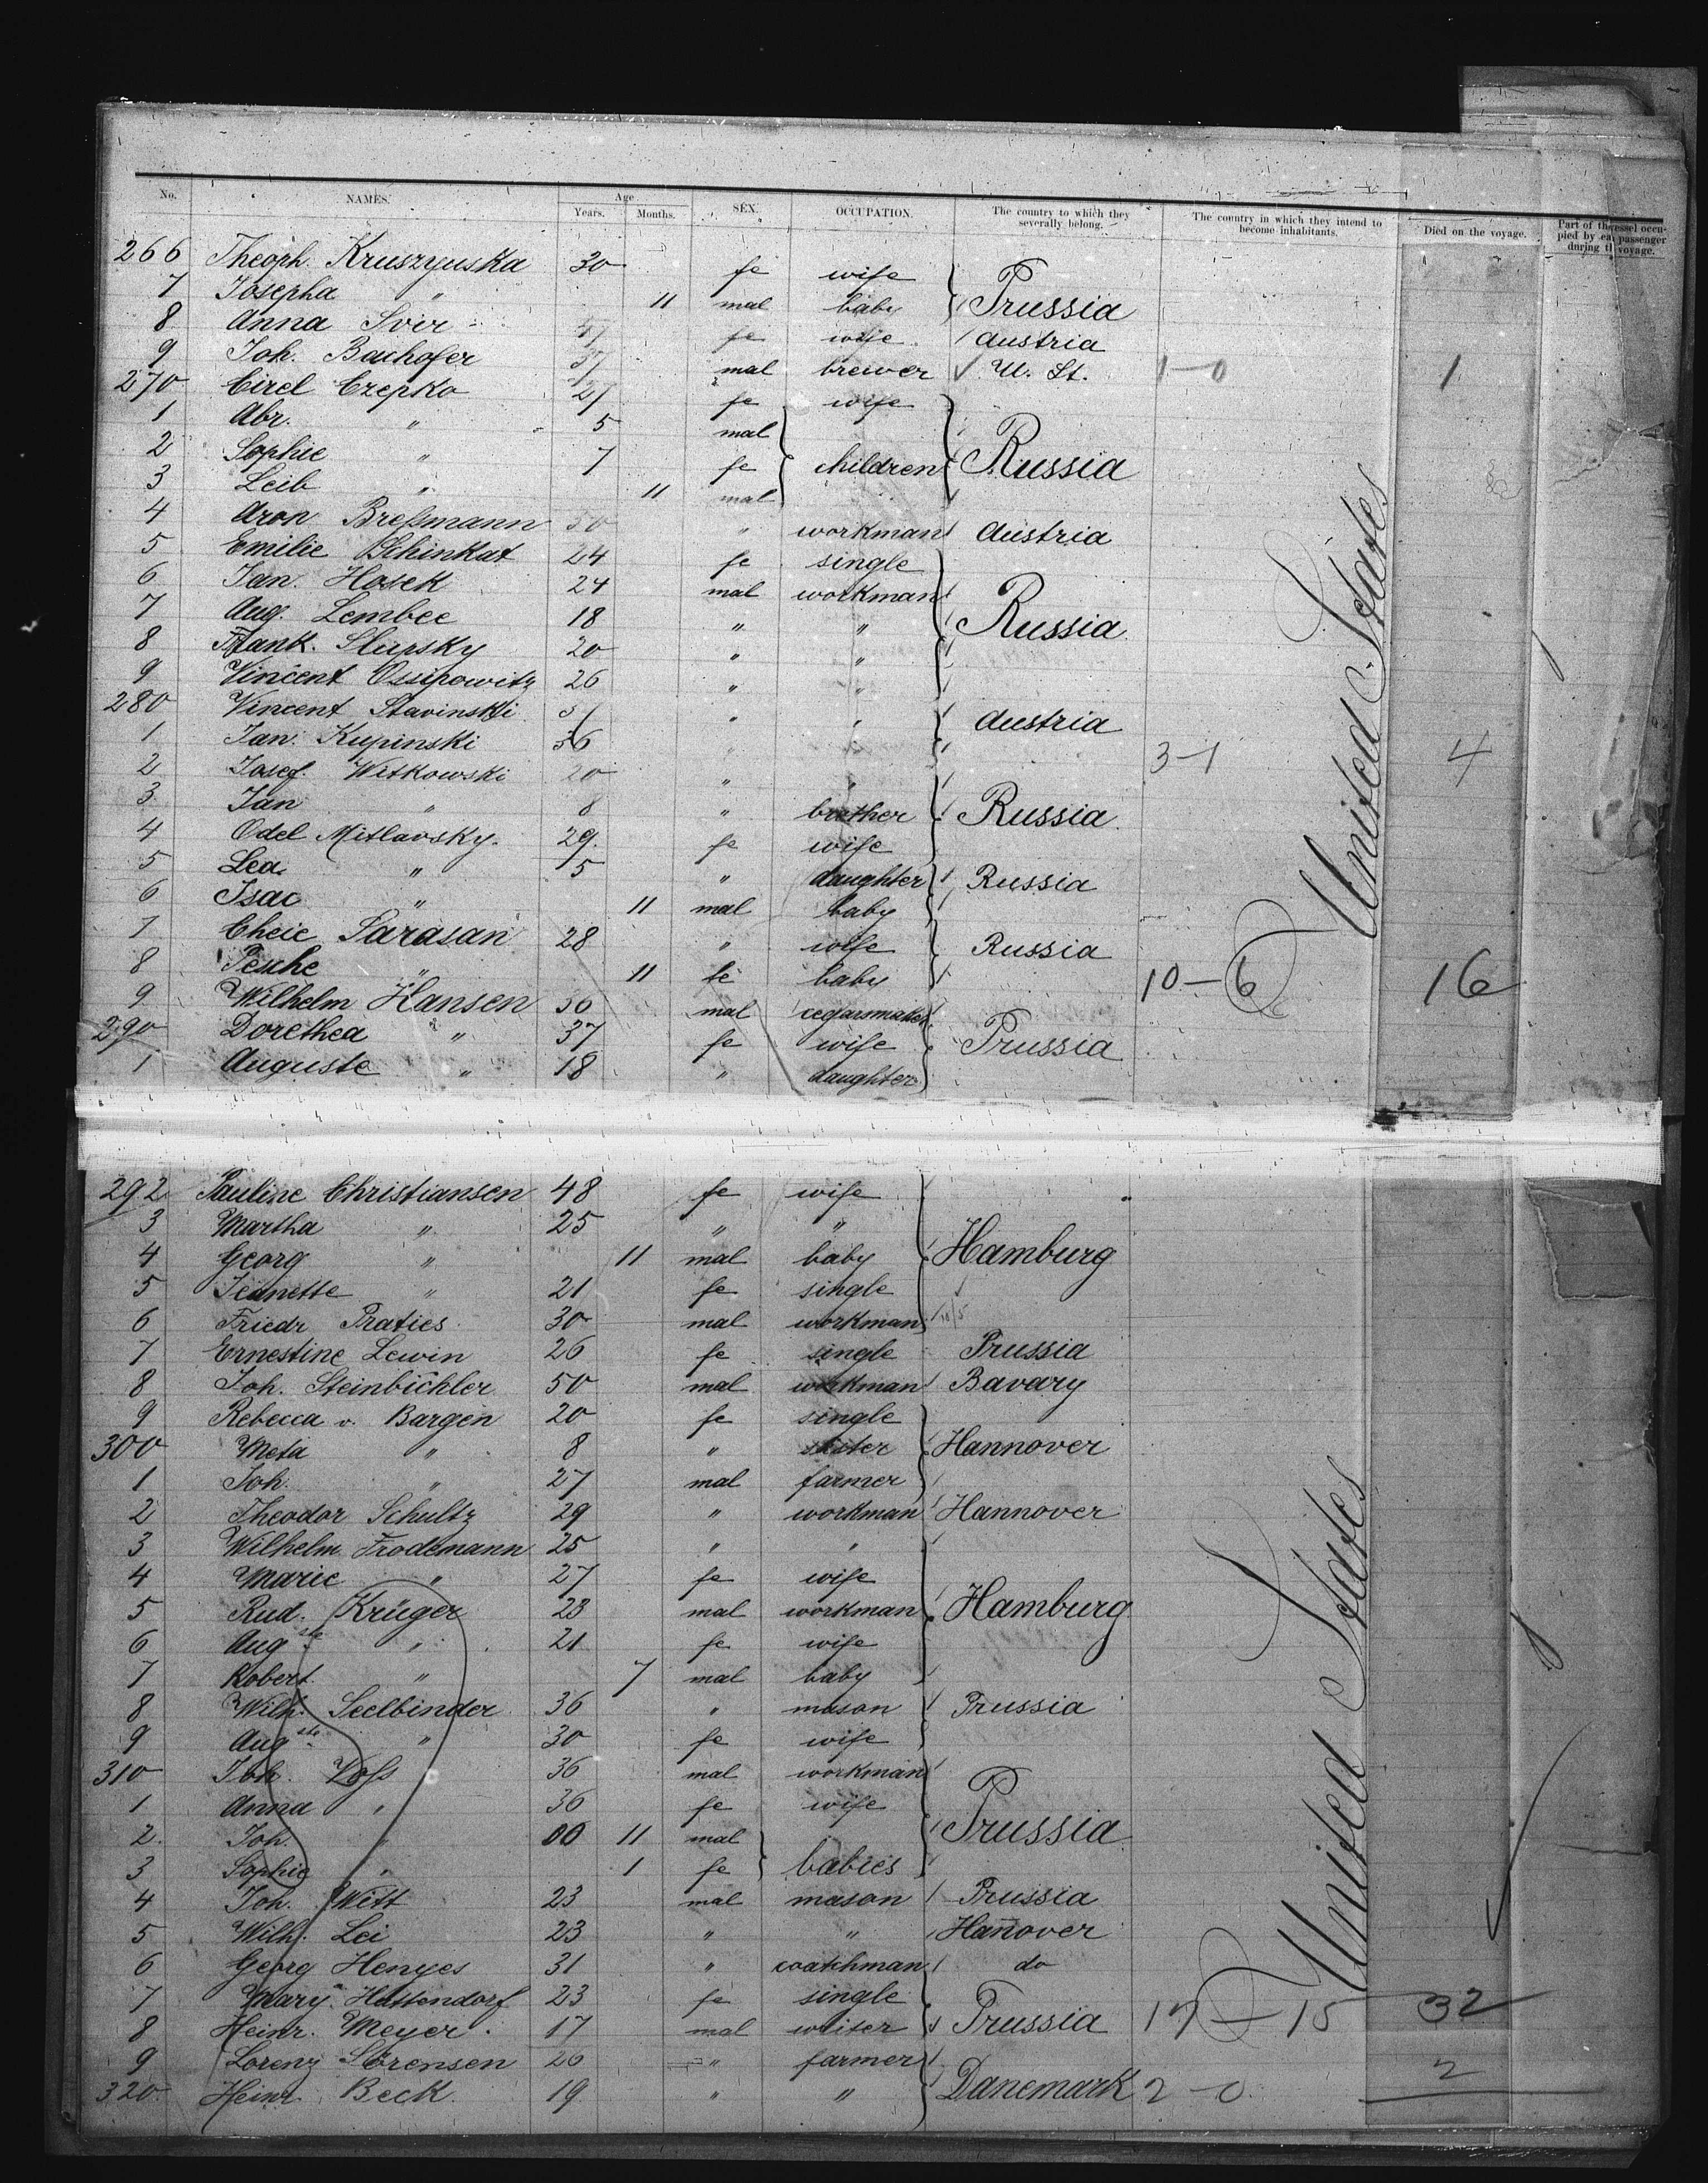 No. NAMES. Age Years. Months. SEX. OCCUPATION. The country to which they severally belong. The country in which they intend to become inhabitants. Died on the voyage. Part of the vessel occupied by each passenger during the voyage.
266 Theoph. Kruszynska 30 fe wife
7 Josepha " 11 mal baby Prussia
8 Anna Svir fe wife Austria
9 Joh. Bachofer 37 mal brewer U. St. 1-0 1
270 Cirel Czepko 27 fe wife
1 Abr. " 5 mal
2 Sophie " 7 fe children Russia
3 Leib " 11 mal
4 Aron Breßmann 50 " workman Austria
5 Emilie Schinkat 24 fe single
6 Jan Hosek 24 mal workman
7 Aug. Lembee 18 " " Russia
8 Frank. Slupsky 20 " "
9 Vincent Ossipowitz 26 " "
280 Vincent Stavinski " " Austria
1 Jan. Kupinski 36 3-1 4
2 Josef. Witkowski 20 " "
3 Jan " 8 " brother Russia
4 Odel Mitlavsky. 29. fe wife
5 Lea " 5 " daughter Russia
6 Isac " 11 mal baby
7 Cheie Sarasan 28 " wife Russia
8 Pesche " 11 fe baby 10-6 16
9 Wilhelm Hansen 50 mal cegarsmaker
290 Dorethea " 37 fe wife Prussia
1 Auguste " 18 " daughter
United States
292 Pauline Christiansen 48 fe wife
3 Martha " 25 " "
4 Georg " 11 mal baby Hamburg
5 Jeanette " 21 fe single
6 Friedr Praties 30 mal workman
7 Ernestine Lewin 26 fe single Prussia
8 Joh. Steinbichler 50 mal workman Bavary
9 Rebecca v. Bargen 20 fe single
300 Meta " 8 " sister Hannover
1 Joh. " 27 mal farmer
2 Theodor Schultz 29 " workman Hannover
3 Wilhelm Frodemann 25 " "
4 Marie " 27 fe wife
5 Rud. Krüger 23 mal workman Hamburg
6 Augste " 21 fe wife
7 Robert " 7 mal baby
8 Wilh. Seelbinder 36 " mason Prussia
9 Augste " 30 fe wife
310 Joh. Voss 36 mal workman
1 Anna " 36 fe wife
2. Joh. " 00 11 mal Prussia
3 Sophie " 1 fe babies
4 Joh. Witt 23 mal mason Prussia
5 Wilh. Lei 23 " " Hanover
6 Georg Henges 31 " coatchman do
7 Mary Hattendorf 23 fe single
8 Heinr. Meyer. 17 mal writer Prussia 17-15 32
9 Lorenz Sörensen 26 " farmer 2
320 Heinr Beck 19 " " Danemark 2-0
United States